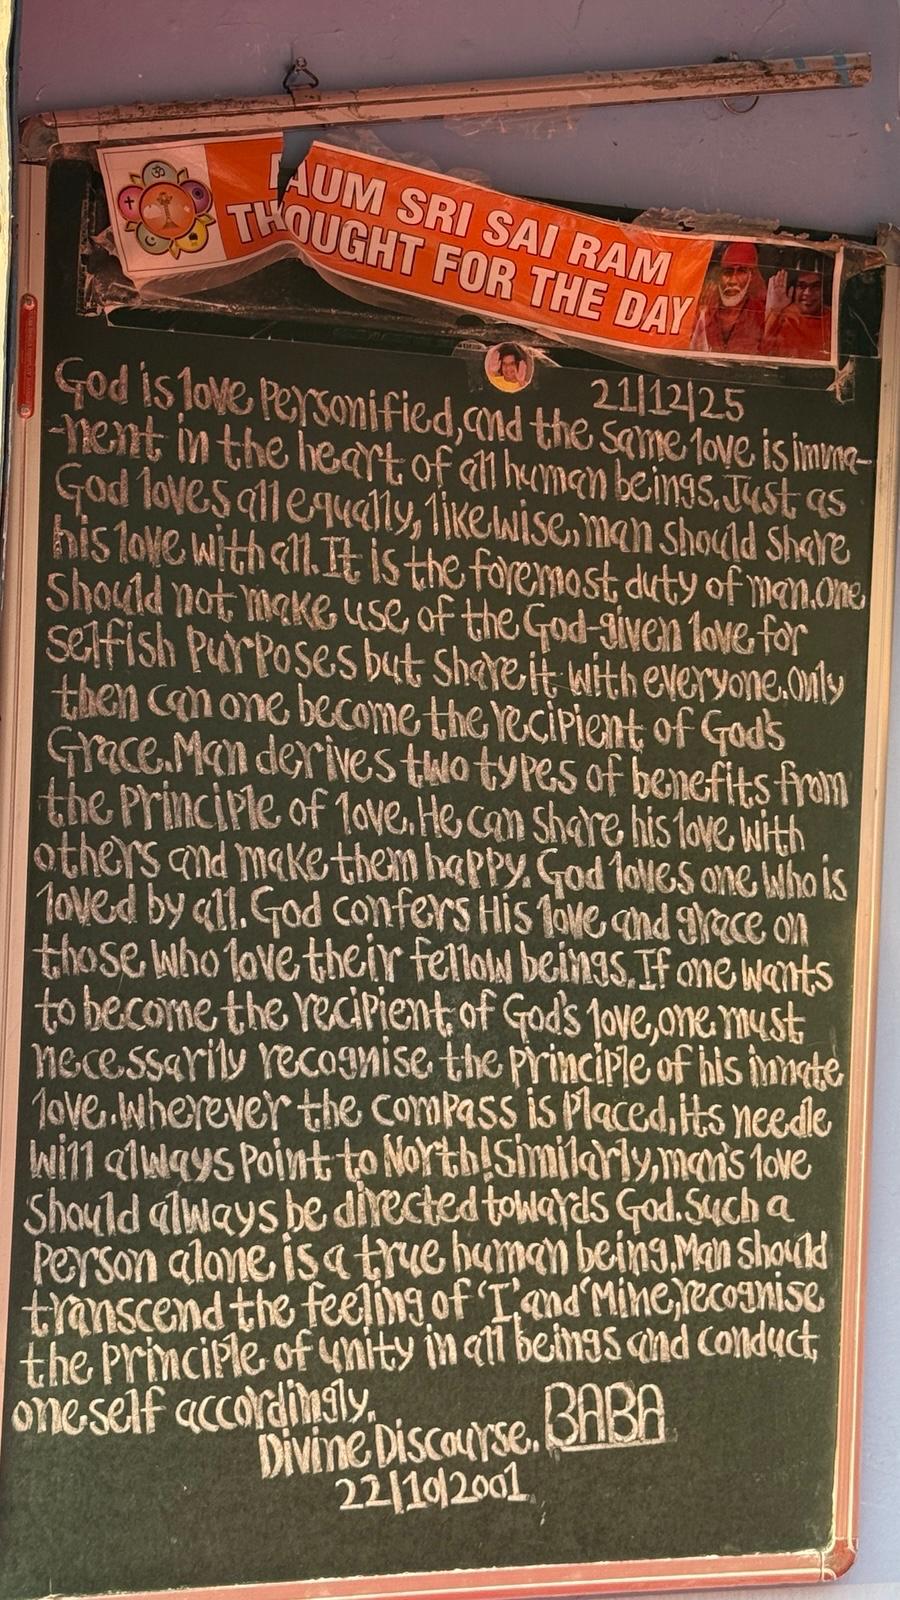 AUM SRI SAI RAM
THOUGHT FOR THE DAY
21/12/25
God is love personified, and the same love is imma-
-nent in the heart of all human beings. Just as
God loves all equally, likewise, man should share
his love with all. It is the foremost duty of man. one
should not make use of the God-given love for
selfish purposes but share it with everyone. only
then can one become the recipient of God's
Grace. Man derives two types of benefits from
the principle of love. He can share his love with
others and make them happy. God loves one who is
loved by all. God confers His love and grace on
those who love their fellow beings. If one wants
to become the recipient of God's love, one must
necessarily recognise the principle of his innate
love. Wherever the compass is placed, its needle
will always point to North! Similarly, man's love
should always be directed towards God. Such a
person alone is a true human being. Man should
transcend the feeling of 'I' and 'Mine, recognise
the principle of unity in all beings and conduct
oneself accordingly.
Divine Discourse. BABA
22/10/2001